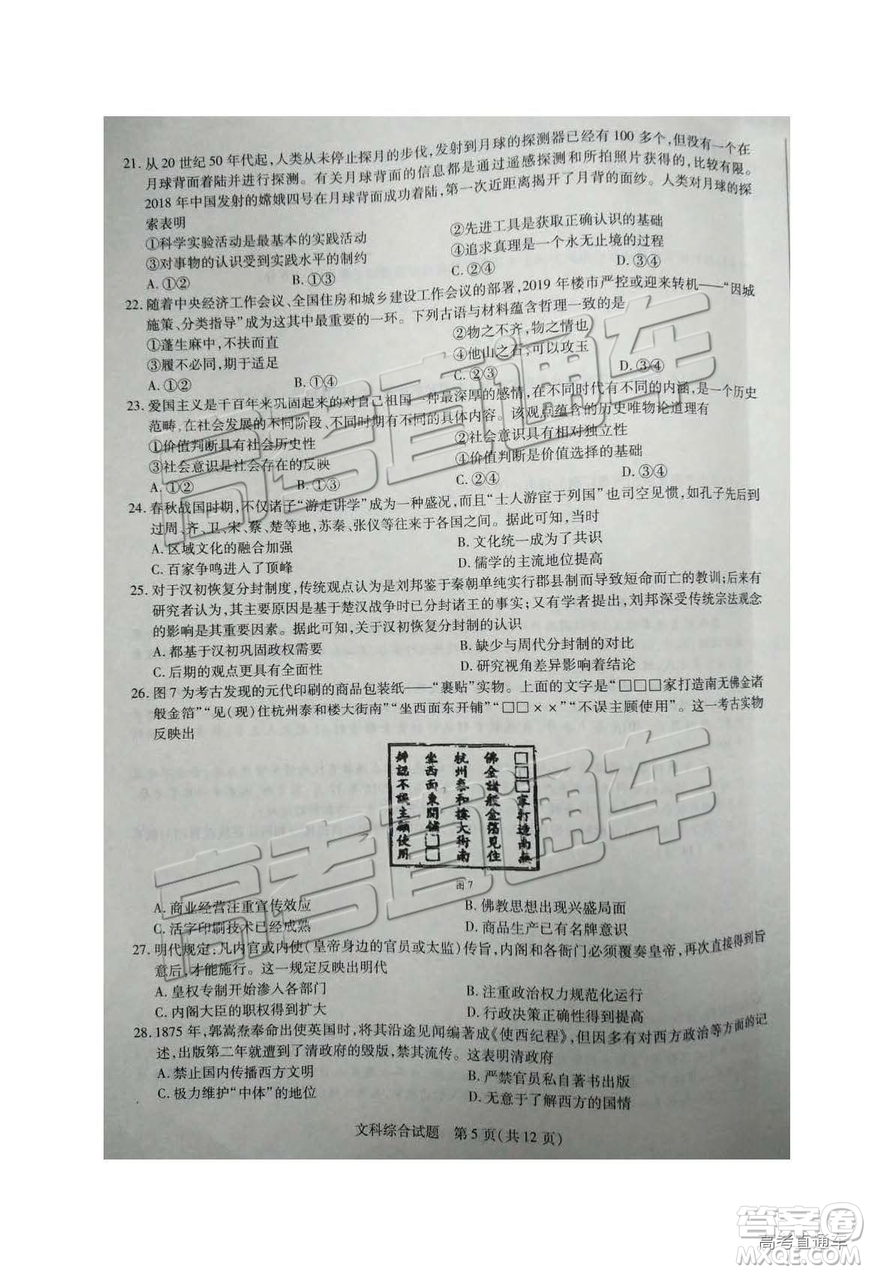 21. 从 20 世纪 50 年代起，人类从未停止探月的步伐，发射到月球的探测器已经有 100 多个，但没有一个在
月球背面着陆并进行探测。有关月球背面的信息都是通过遥感探测和所拍照片获得的，比较有限。
2018 年中国发射的嫦娥四号在月球背面成功着陆，第一次近距离揭开了月背的面纱。人类对月球的探
索表明
①科学实验活动是最基本的实践活动 ②先进工具是获取正确认识的基础
③对事物的认识受到实践水平的制约 ④追求真理是一个永无止境的过程
A. ①② B. ①③ C. ②④ D. ③④
22. 随着中央经济工作会议、全国住房和城乡建设工作会议的部署，2019 年楼市严控或迎来转机——“因城
施策、分类指导”成为这其中最重要的一环。下列古语与材料蕴含哲理一致的是
①蓬生麻中，不扶而直 ②物之不齐，物之情也
③履不必同，期于适足 ④他山之石，可以攻玉
A. ①② B. ①④ C. ②③ D. ③④
23. 爱国主义是千百年来巩固起来的对自己祖国一种最深厚的感情，在不同时代有不同的内涵，是一个历史
范畴，在社会发展的不同阶段、不同时期有不同的具体内容。该观点蕴含的历史唯物论道理有
①价值判断具有社会历史性 ②社会意识具有相对独立性
③社会意识是社会存在的反映 ④价值判断是价值选择的基础
A. ①② B. ①③ C. ②④ D. ③④
24. 春秋战国时期，不仅诸子“游走讲学”成为一种盛况，而且“士人游宦于列国”也司空见惯，如孔子先后到
过周、齐、卫、宋、蔡、楚等地，苏秦、张仪等来往于各国之间。据此可知，当时
A. 区域文化的融合加强 B. 文化统一成为了共识
C. 百家争鸣进入了顶峰 D. 儒学的主流地位提高
25. 对于汉初恢复分封制度，传统观点认为是刘邦鉴于秦朝单纯实行郡县制而导致短命而亡的教训；后有
研究者认为，其主要原因是基于楚汉战争时已分封诸王的事实；又有学者提出，刘邦深受传统宗法观念
的影响是其重要因素。据此可知，关于汉初恢复分封制的认识
A. 都基于汉初巩固政权需要 B. 缺少与周代分封制的对比
C. 后期的观点更具有全面性 D. 研究视角差异影响着结论
26. 图 7 为考古发现的元代印刷的商品包装纸——“裹贴”实物。上面的文字是“□□□家打造南无佛金诸
般金箔”“见(现)住杭州泰和楼大街南”“坐西面东开铺”“□□××”“不误主顾使用”。这一考古实物
反映出
□□□家打造南無
佛金諸般金箔見住
杭州泰和樓大街南
坐西面東開鋪□□
辨認不誤主顧使用
图 7
A. 商业经营注重宣传效应 B. 佛教思想出现兴盛局面
C. 活字印刷技术已经成熟 D. 商品生产已有名牌意识
27. 明代规定，凡内官或内使(皇帝身边的官员或太监)传旨，内阁和各衙门必须覆奏皇帝，再次直接得到旨
意后，才能施行。这一规定反映出明代
A. 皇权专制开始渗入各部门 B. 注重政治权力规范化运行
C. 内阁大臣的职权得到扩大 D. 行政决策正确性得到提高
28. 1875 年，郭嵩焘奉命出使英国时，将其沿途见闻编著成《使西纪程》，但因多有对西方政治等方面的记
述，出版第二年就遭到了清政府的毁版，禁其流传。这表明清政府
A. 禁止国内传播西方文明 B. 严禁官员私自著书出版
C. 极力维护“中体”的地位 D. 无意于了解西方的国情
文科综合试题 第 5 页(共 12 页)
高考直通车
高考直通车
答案圈
高考直通车
MXQE.COM